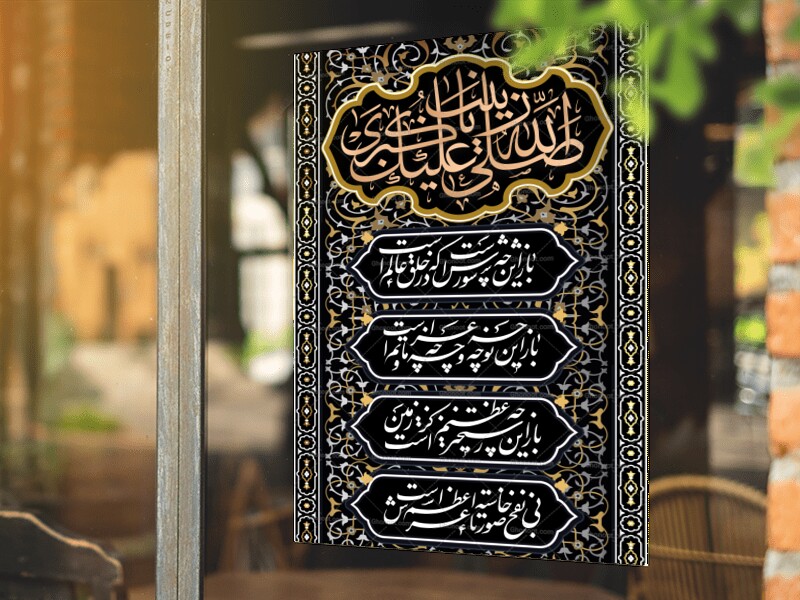 صلی الله علیک یا زینب کبری
باز این چه شورش است که در خلق عالم است
باز این چه نوحه و چه عزا و چه ماتم است
باز این چه رستخیز عظیم است کز زمین
بی نفخ صور خاسته تا عرش اعظم است